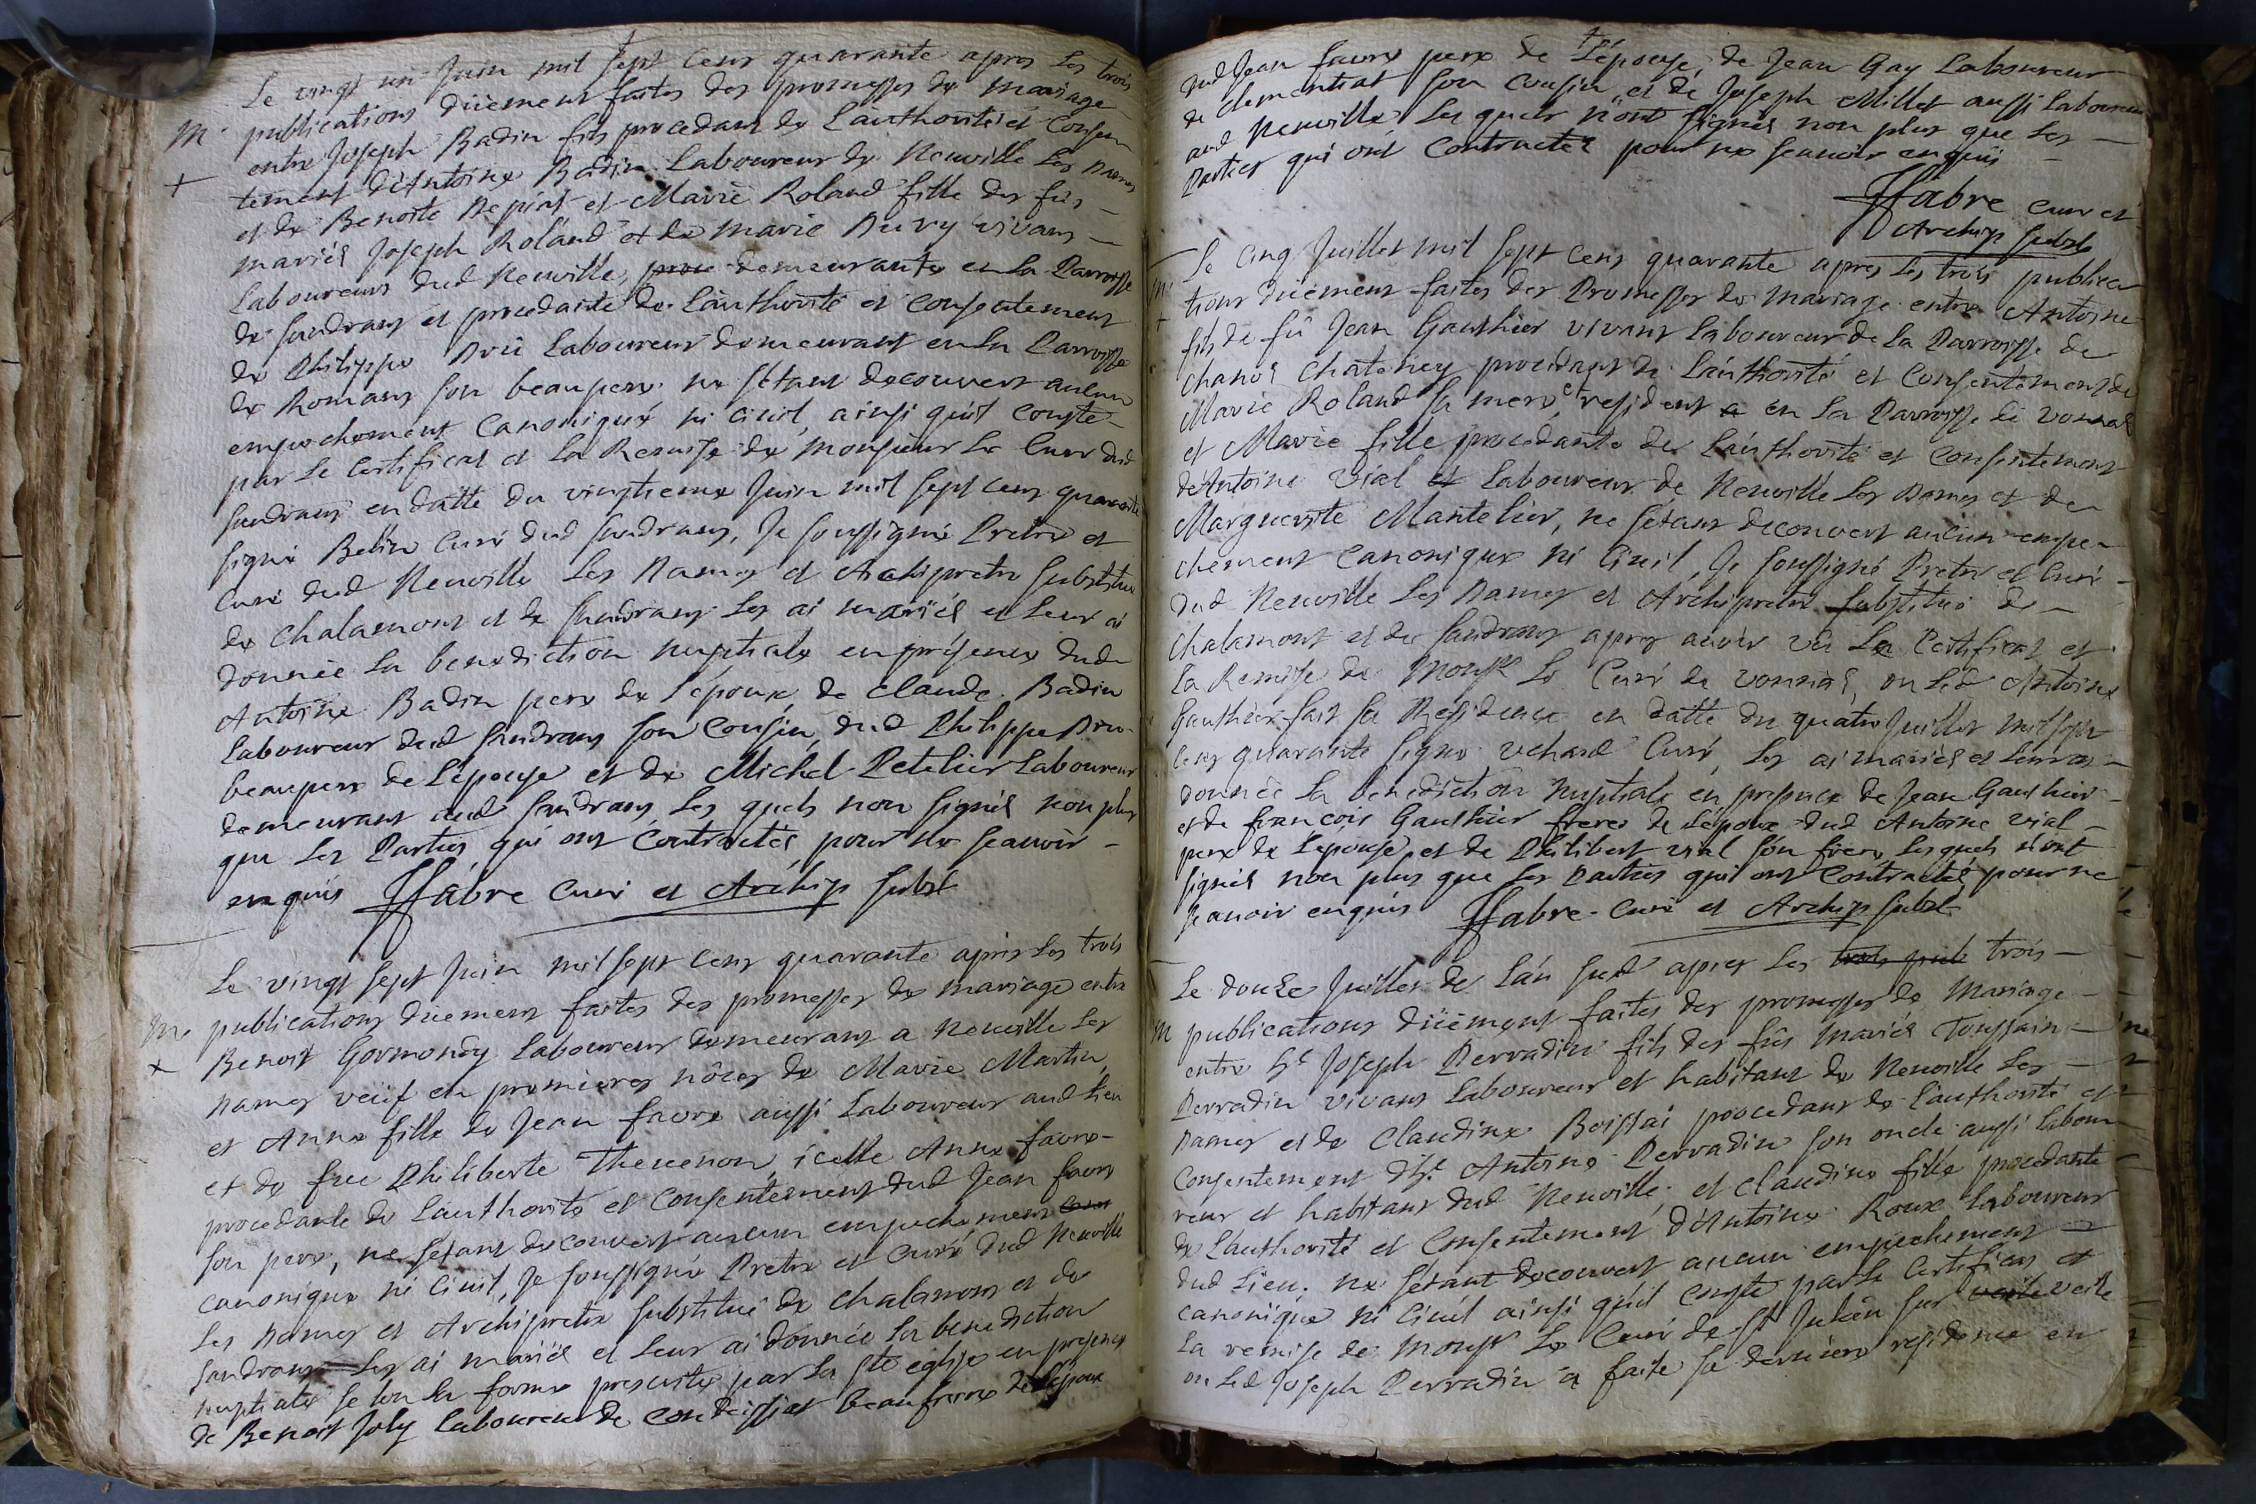 Le vingt un Juin mil sept cens quarante apres les trois
publications düement faites des promesses de mariage
M.
entre Joseph Badin fils procedant de L'authorité et Consen
+
tement d'Antoine Badin Laboureur de Neuville Les Dames
et de Benoite Depirat et Marie Roland fille des fûs
mariés Joseph Roland et de Marie Dury vivans
Laboureurs dud Neuville, demeurante en la Parroisse
de Sandrans et procedante de L'authorité et Consentement
de Philippe Dru Laboureur demeurant en la Parroisse
de Romans son beaupere ne s'étant decouvert aucun
empechement Canonique ni Civil, ainsi qu'il Conste
par Le Certificat et La Remise de Monsieur Le Curé dud
Sandrans en datte du vingtieme Juin mil sept cens quarante
signé Belin Curé dud Sandrans, Je soussigné Pretre et
Curé dud Neuville Les Dames et Archipretre substitué
de Chalamont et de Sandrans Les ai mariés et Leur ai
donnée La benediction nuptiale en présence dud
Antoine Badin pere de L'époux, de Claude Badin
Laboureur dud Sandrans son Cousin, dud Philippe Dru
beaupere de L'épouse et de Michel Petelier Laboureur
demeurant aud Sandrans, Les quels n'on signés non plus
que Les Parties qui ont Contractés pour ne sçavoir
enquis FFabre Curé et Archip Subst
Le vingt sept Juin mil sept cens quarante après Les trois
publications duement faites des promesses de mariage entre
M.
Benoit Gormondy Laboureur demeurant a Neuville Les
+
Dames veüf en premieres nôces de Marie Martin,
et Anne fille de Jean favre aussi Laboureur aud Lieu
et de feue Philiberte Thevenon, icelle Anne favre
procedante de L'authorité et Consentement dud Jean favre
son pere, ne s'étant decouvert aucun empechement
canonique ni Civil, Je soussigné Pretre et Curé dud Neuville
Les Dames et Archipretre substitué de Chalamont et de
Sandrans Les ai mariés et Leur ai donnée La benediction
nuptiale selon La forme prescrite par La Ste eglise en presence
de Benoit Joly Laboureur de Condeissiat beaufrere de L'époux
dud Jean favre pere de L'épouse, de Jean Gay Laboureur
de Clemenciat son Cousin, et de Joseph Millet aussi Laboureur
aud Neuville Les quels n'ont signés non plus que Les
Parties qui ont Contractés pour ne sçavoir enquis
FFabre curé et
Archip subst
Le Cinq Juillet mil sept cens quarante apres Les trois publica
M.
tions düement faites des Promesses de Mariage entre Antoine
+
fils de fû Jean Gauthier vivant Laboureur de La Parroisse de
Chanos Chateney procédant de L'authorité et Consentement de
Marie Roland sa mere et resident en La Parroisse de Vonnas
et Marie fille procedante de L'authorité et Consentement
d'Antoine Vial Laboureur de Neuville Les Dames et de
Marguerite Mantelier, ne s'étant decouvert aucun empe
chement Canonique ni Civil, Je soussigné Pretre et Curé
dud Neuville Les Dames et Archipretre substitué de
Chalamont et de Sandrans apres avoir vû Le Certificat et
La Remise de Monsr Le Curé de Vonnas, ou Led Antoine
Gauthier fait sa Residence en datte du quatre Juillet mil sept
cens quarante signé Curé, Les ai mariés et Leur ai
donnée La benediction Nuptiale en presence de Jean Gauthier
et de françois Gauthier freres de L'époux dud Antoine Vial
pere de L'épouse, et de Philibert Vial son frere, Lesquels n'ont
signés non plus que Les Parties qui ont Contractés pour ne
sçavoir enquis FFabre Curé et Archip subst
Le douze Juillet de L'an susd apres Les trois pub trois
publications düement faites des promesses de Mariage
M
entre Joseph Perradin fils des fûs mariés Toussain
Perradin vivant Laboureur et habitant de Neuville Les
Dames et de Claudine Boissai procedant de L'authorité et
Consentement d'h. Antoine Perradin son oncle aussi Labou
reur et habitant dud Neuville, et Claudine fille procedante
de L'authorité et Consentement d'Antoine Roux Laboureur
dud Lieu. ne s'étant decouvert aucun empechement
canonique ni Civil ainsi qu'il Conste par Le Certificat et
La remise de Monsr Le Curé de St Julien sur veile
ou Led Joseph Perradin a faite sa derniere residence en